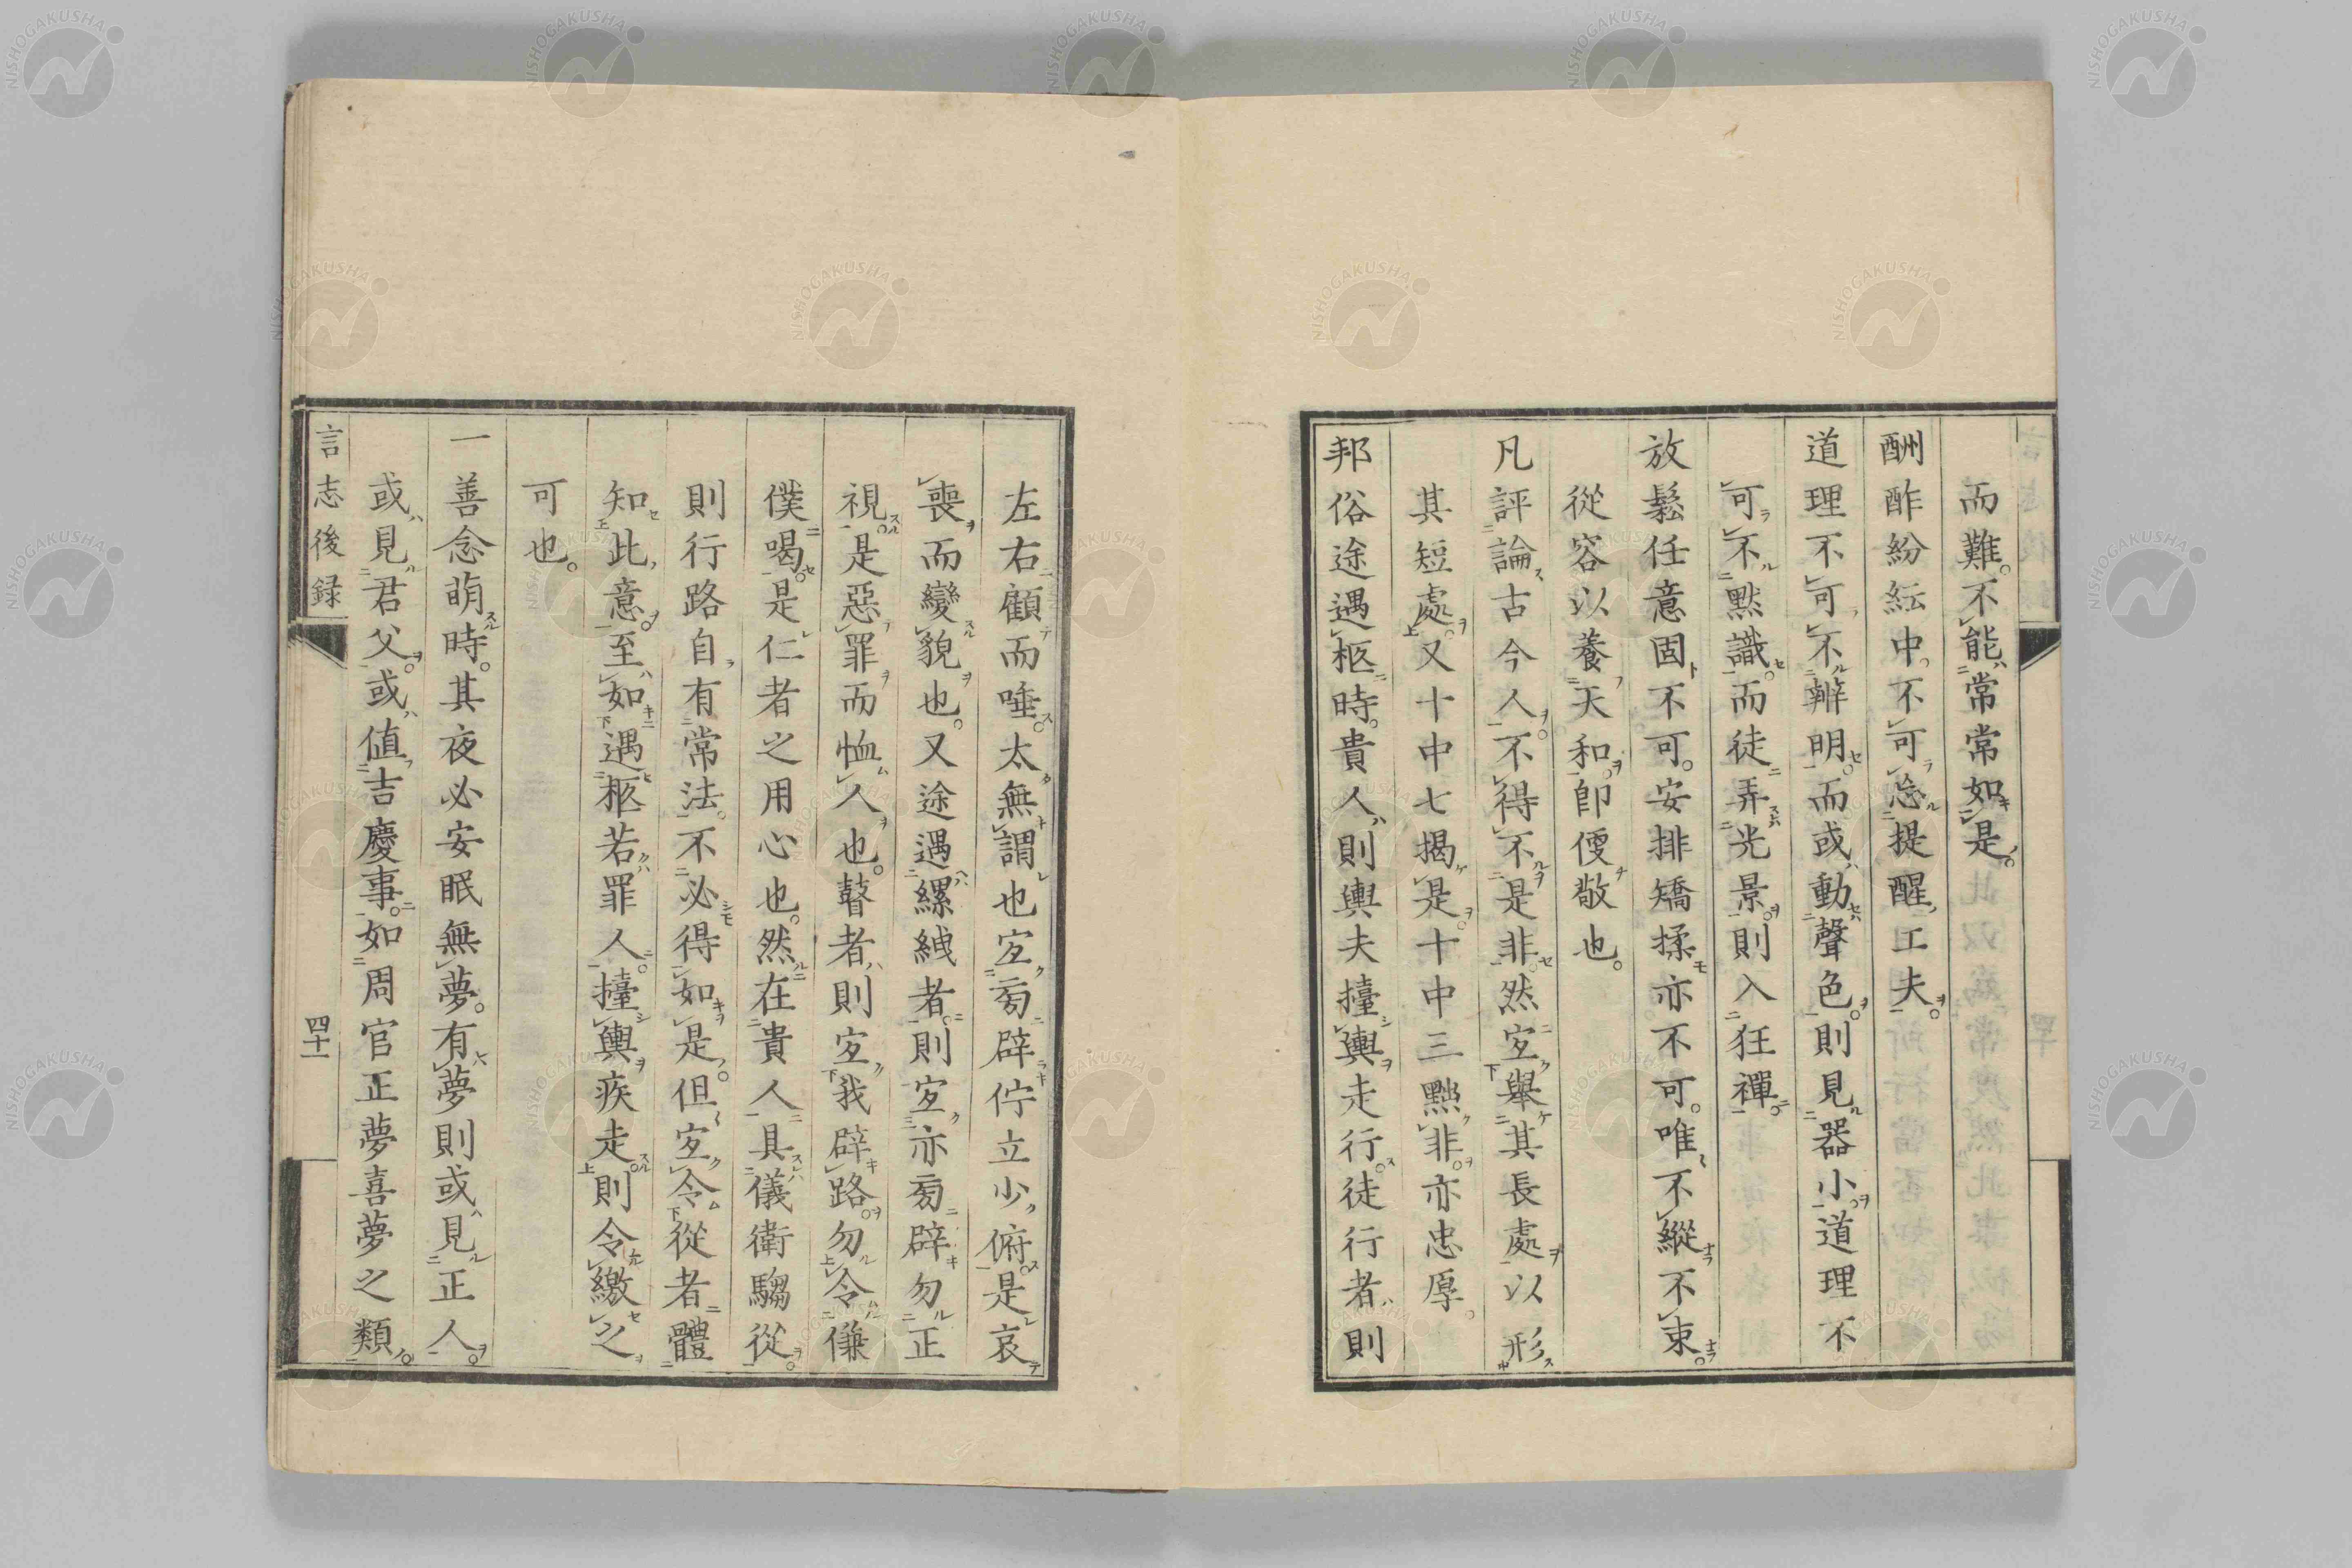 而難。不能常常如是。
酬酢紛紜中。不可忘提醒工夫。
道理不可不辨明。而或動聲色。則見器小。道理不
可不默識。而徒弄光景。則入狂禪。
放鬆任意固不可。安排矯揉亦不可。唯不縱不束。
從容以養天和。卽便敬也。
凡評論古今人。不得不是非。然宜擧其長處以形
其短處。又十中七揭是。十中三黜非。亦忠厚。
邦俗途遇柩時。貴人則輿夫擡輿走行。徒行者則
左右顧而唾。太無謂也。宜旁辟佇立少俯。是哀
喪而變貌也。又途遇縲絏者。則宜亦旁辟勿正
視。是惡罪而恤人也。瞽者則宜我辟路。勿令傔
僕喝。是仁者之用心也。然在貴人具儀衛騶從。
則行路自有常法。不必得如是。但宜令從者體
知此意。至如遇柩若罪人。擡輿疾走。則令繳之
可也。
一善念萌時。其夜必安眠無夢。有夢則或見正人。
或見君父。或値吉慶事。如周官正夢喜夢之類。
言志後録
四十一
NISHOGAKUSHA